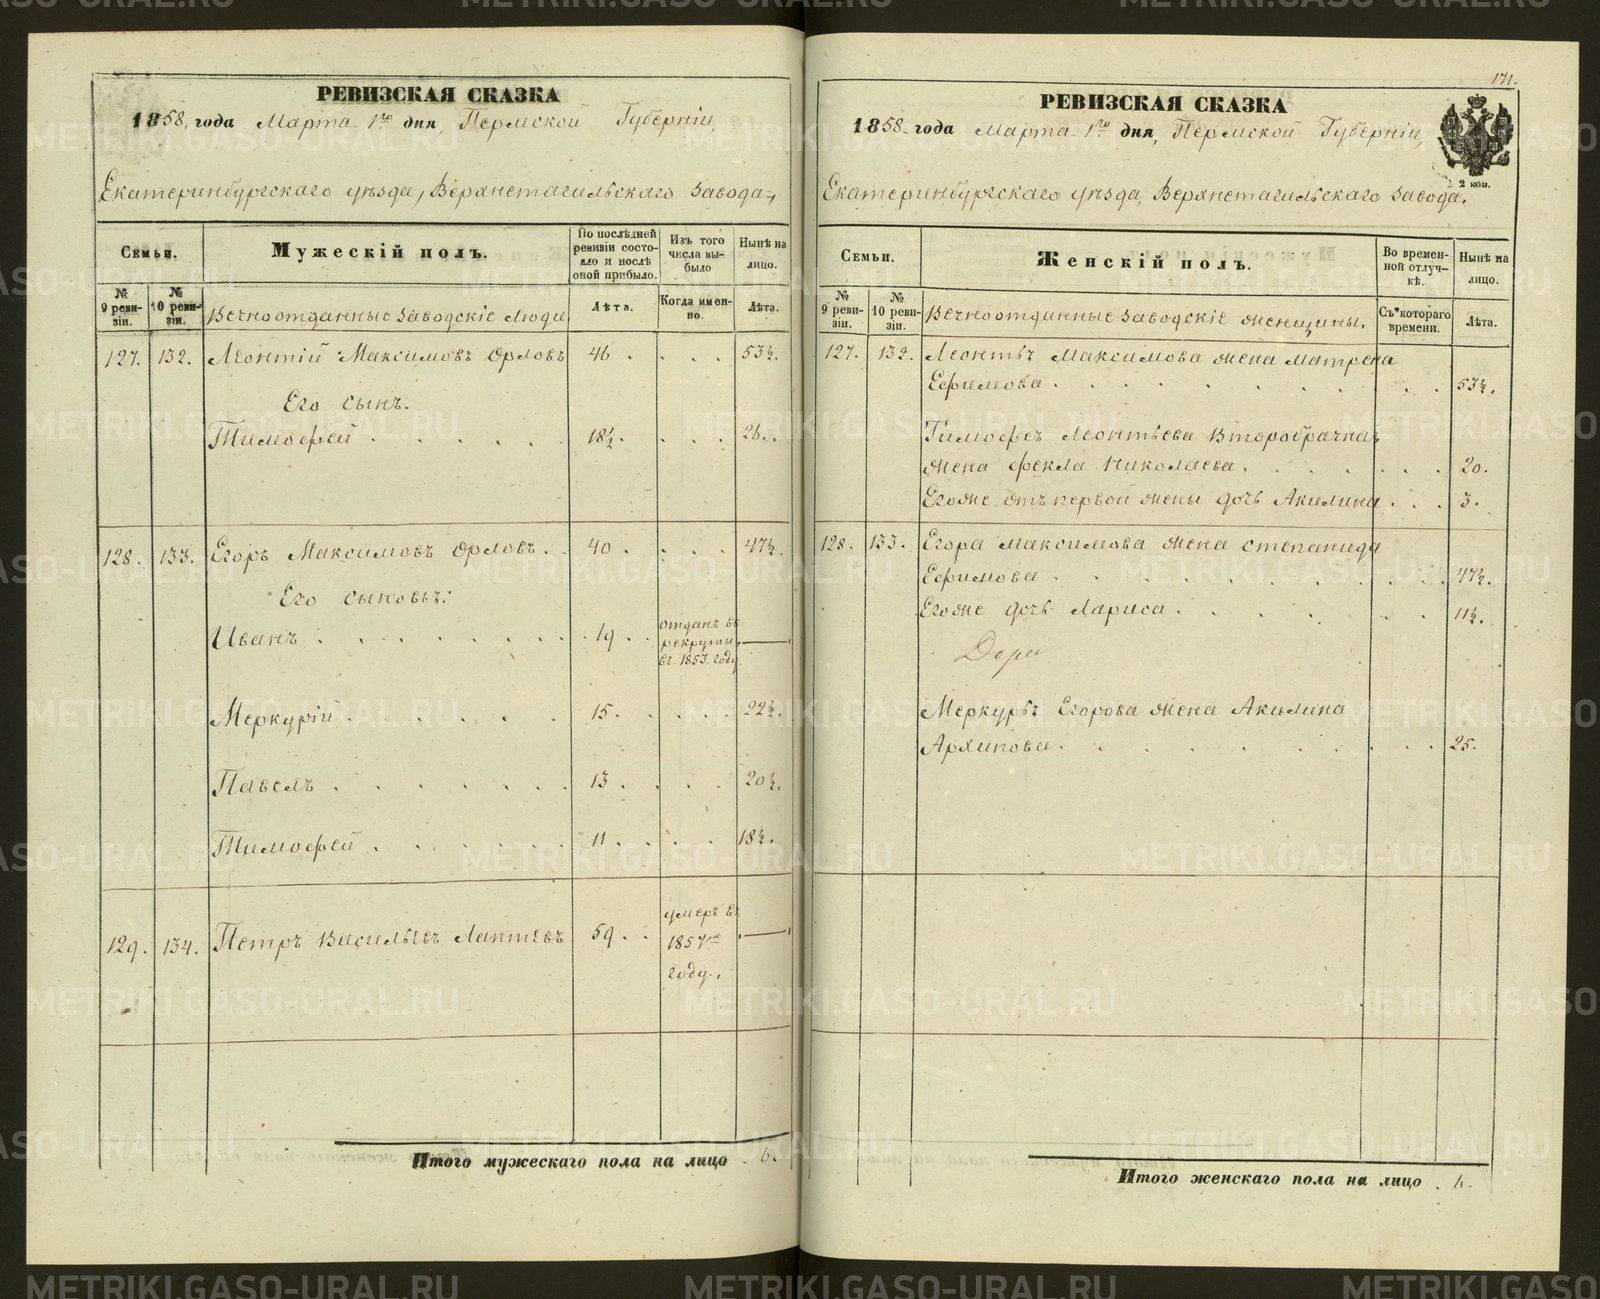 РЕВИЗСКАЯ СКАЗКА
1858, года Марта 1го дня, Пермской Губерніи,
Екатеринбургскаго уѣзда, Верхнетагильскаго завода,
Семьи.
Мужескій полъ.
По послѣдней ревизіи состояло и послѣ оной прибыло.
Изъ того числа выбыло
Нынѣ на лицо.
№ 9 ревизіи.
№ 10 ревизіи.
Вечноотданные заводскіе люди
Лѣта.
Когда именно.
Лѣта.
127. 132. Леонтій Максимовъ Орловъ 46 . . . . 53½.
Его сынъ.
Тимофей . . . . . . 18½. . . . 26.
128. 133. Егоръ Максимовъ Орловъ. . 40 . . . . 47½.
Его сыновья:
Иванъ . . . . . . . 19 . . отданъ въ рекруты въ 1853 году —
Меркурій . . . . . 15. . . . . 22½.
Павелъ . . . . . . . 13 . . . . 20½.
Тимофей . . . . . . 11 . . . . . 18½.
129. 134. Петръ Васильевъ Лаптевъ 59 . . умеръ въ 1857мъ году. —
Итого мужескаго пола на лицо . 6.
171.
РЕВИЗСКАЯ СКАЗКА
1858 года Марта 1го дня, Пермской Губерніи,
2 коп.
Екатеринбургскаго уѣзда, Верхнетагильскаго завода.
Семьи.
Женскій полъ.
Во временной отлучкѣ.
Нынѣ на лицо.
№ 9 ревизіи.
№ 10 ревизіи.
Вечноотданные заводскіе женщины.
Съ котораго времени.
Лѣта.
127. 132. Леонтья Максимова жена Матрена
Ефимова . . . . . . . . . 53½.
Тимофея Леонтьева второбрачная
жена Фекла Николаева . . . . . . . 20.
Егоже отъ первой жены дочь Акилина . . . 3.
128. 133. Егора Максимова жена Степанида
Ефимова . . . . . . . . . 47½.
Егоже дочь Лариса . . . . . . . 11½.
Меркурья Егорова жена Акилина
Архипова . . . . . . . . 25.
Итого женскаго пола на лицо .
METRIKI.GASO-URAL.RU